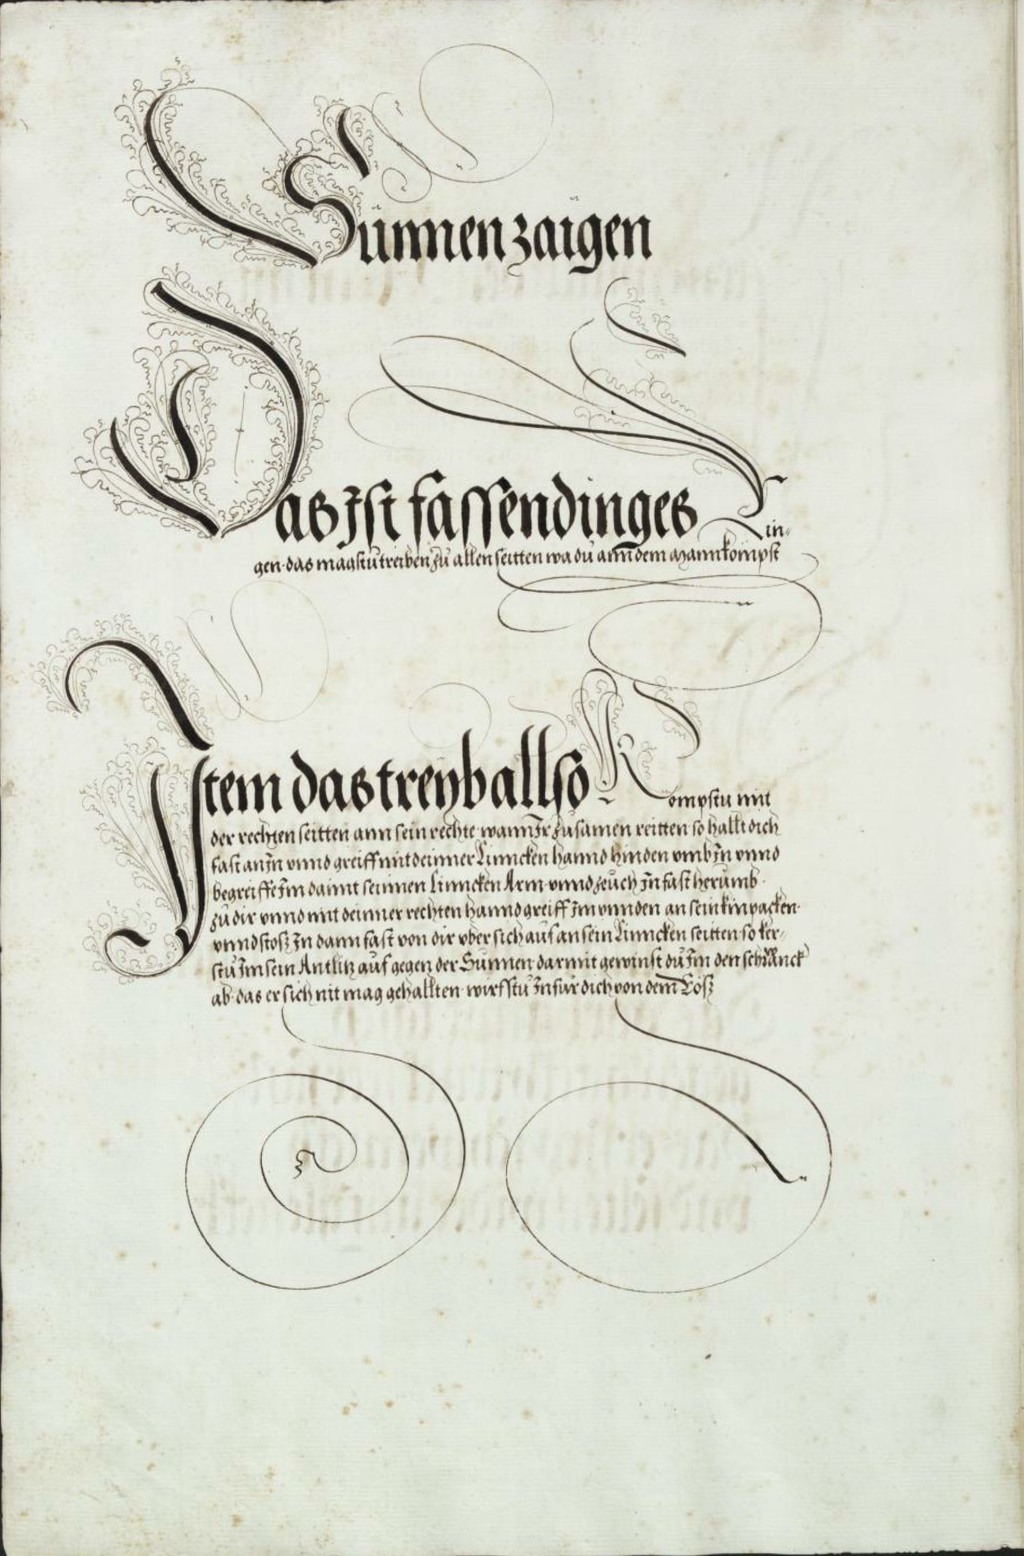 Sünnenzaigen
Das Ist fassendinges Rin-
gen. das magstu treiben zu allen seitten wa du ann dem Mann kompst
Item das treyb allso Kompstu mit
der rechten seitten ann sein rechte wann Ir zusamen reitten so hallt dich
fast an In vnnd greiff mit deinner Linncken hannd hinden vmb In vnnd
begreiffe Im damit seinnen Linncken Arm vnnd zeuch In fast herumb
zu dir vnnd mit deinner rechten hannd greiff Im vnnden an sein kinpacken
vnnd stosz In dann fast von dir vber sich aus an sein Linncken seitten so ker-
stu Im sein Antlitz auf gegen der Sunnen darmit gewinst du Im den schranck
ab das er sich nit mag gehallten wirfstu In für dich von dem Rosz